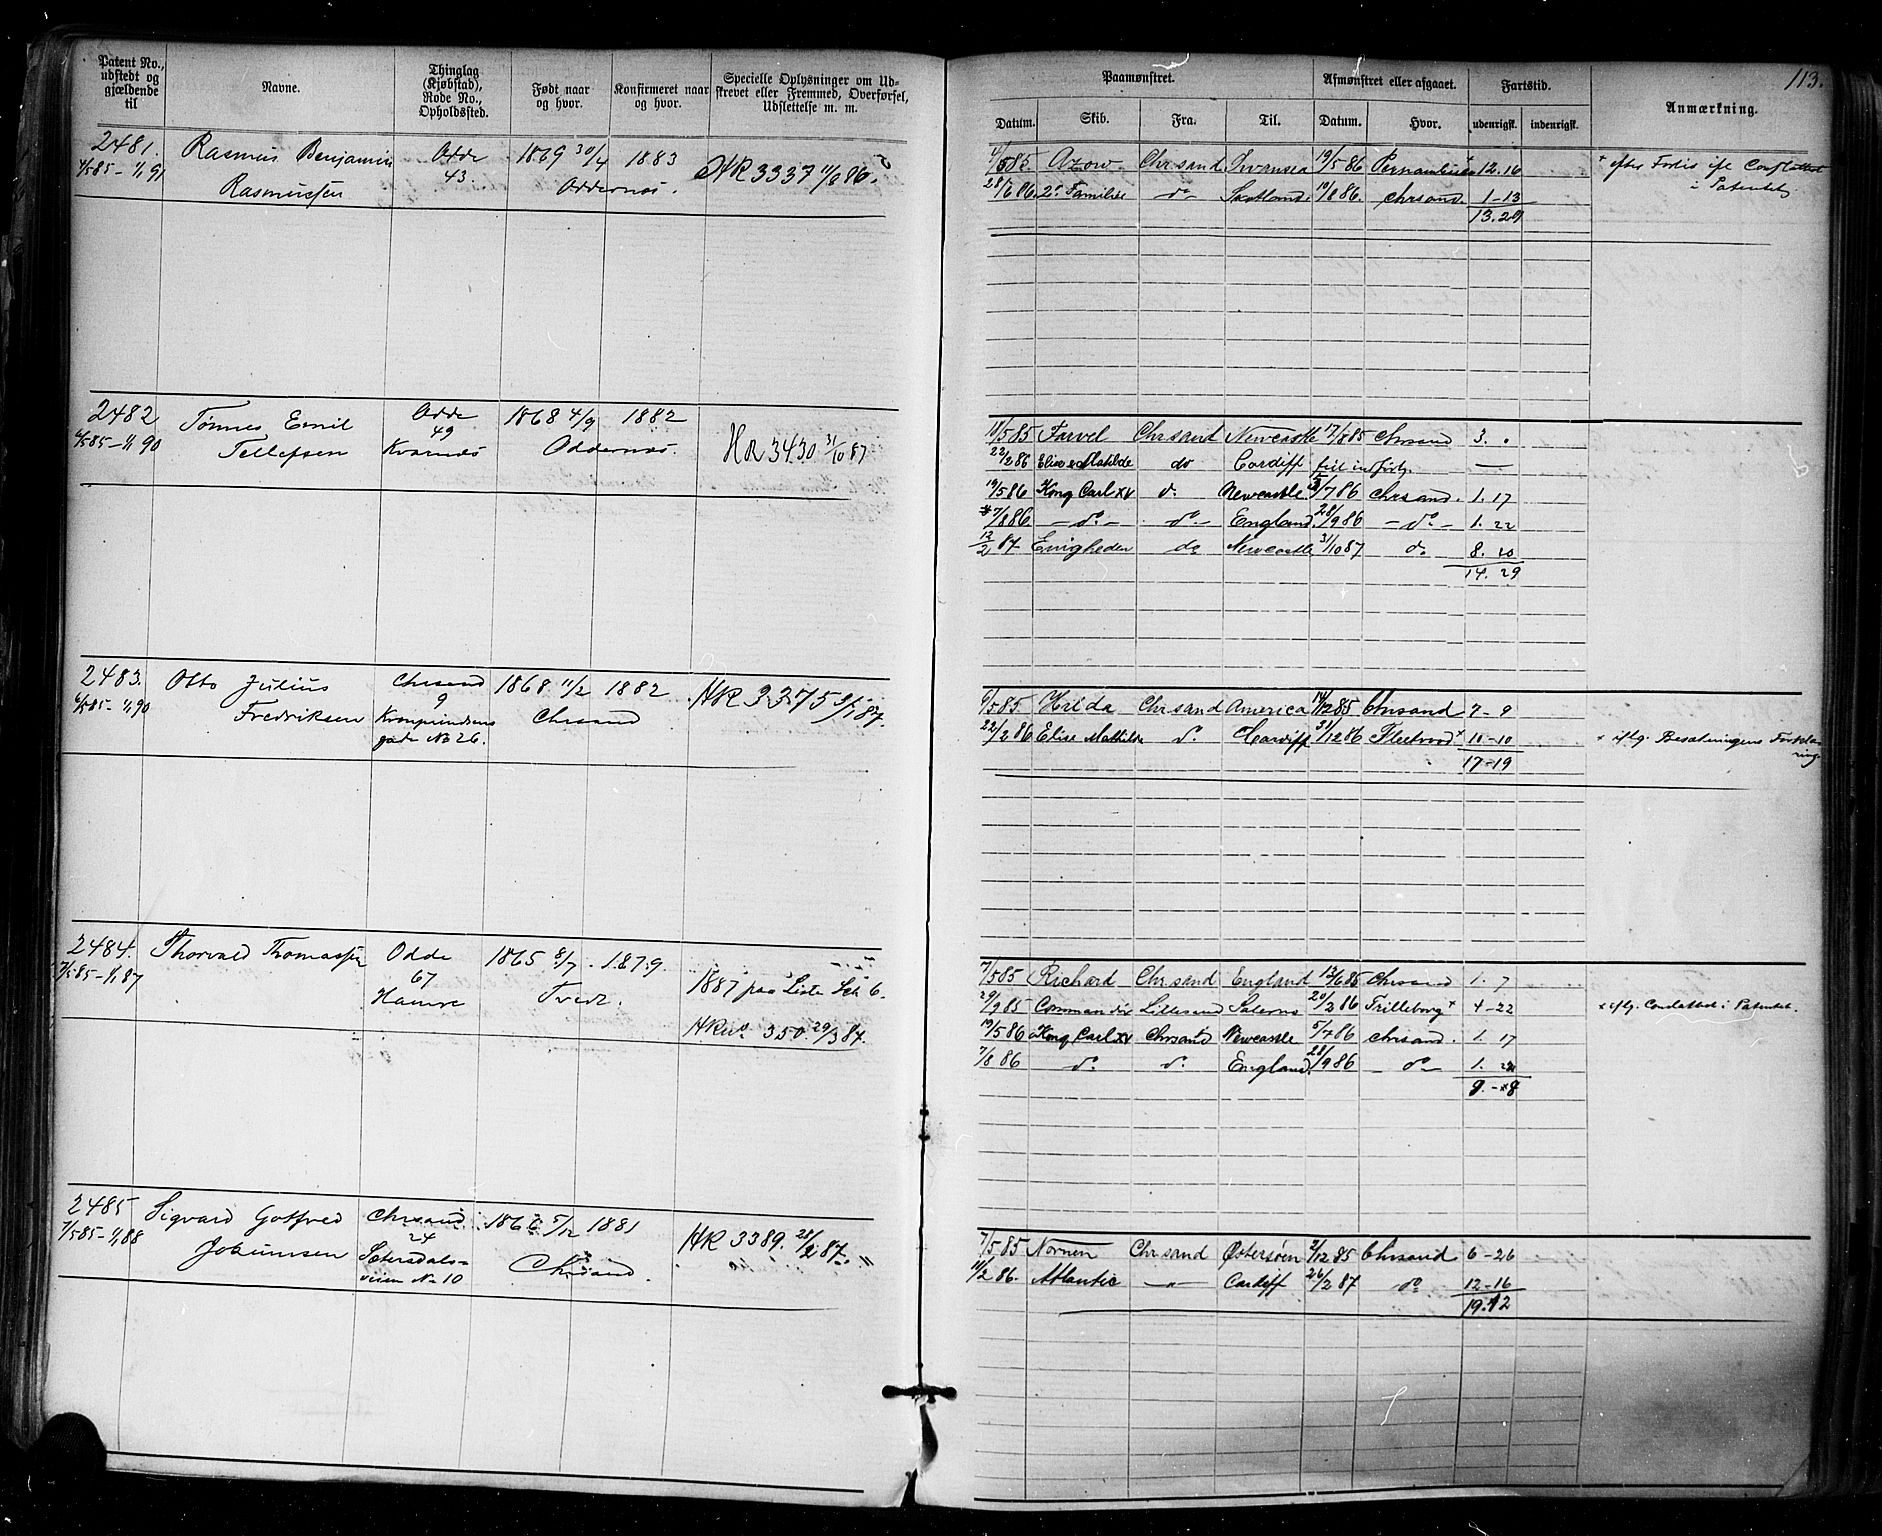 113.
Patent No., udstedt og gjældende til
Navne.
Thinglag (Kjøbstad), Rode No., Opholdssted.
Født naar og hvor.
Konfirmeret naar og hvor.
Specielle Oplysninger om Udskrevet eller Fremmed, Overførsel, Udslettelse m. m.
Paamønstret.
Afmønstret eller afgaaet.
Fartstid.
Anmærkning.
Datum. Skib. Fra. Til. Datum. Hvor. udenrigsk. indenrigsk.
2481. Rasmus Benjamin Odde 1869 30/4 1883 HR 3337 11/8 86.
6/5 85 – 1/1 91 Rasmussen 43. Oddernæs.
Azow Chrsand Swansea 19/5 86 Pernambuco + 12. 16
28/6 86. 2de Familie do Skotland. 10/8 86. Chrsand. 1–13
13. 29
2482 Tønnes Emil Odde 1868 4/9 1882
6/5 85 – 1/1 90 Tellefsen 49 Kvarnæs Oddernæs. HR 3430 31/10 87
11/5 85 Farvel Chrsand Newcastle 17/8 85 Chrsand 3. "
22/2 86 Elise & Mathilde do Cardiff —
19/5 86 Kong Carl XV do Newcastle 5/7 86 Chrsand. 1. 17
7/8 86. – do – do – England. 28/9 86 – do – 1. 22
12/2 87 Enigheden do Newcastle 31/10 87 do 8. 20
14. 29
2483. Otto Julius Chrsand 1868 11/2 1882 HR 3375
6/5 85 – 1/1 90 Fredriksen 9 Kronprindsens gade No 26. Chrsand
6/5 85 Hilda Chrsand America 14/12 85 Chrsand 7–9
22/2 86 Elise Mathilde do Cardiff 31/12 86 Fleetwood + 10–10
17–19
+ iflg. Besætningens Forklaring.
2484. Thorvald Thomassen Odde 1865 8/7 1879. 1887 paa Liste Litr 6.
7/5 85 – 1/1 87 67 Hamre Tved. HR No 350. 29/3 87.
7/5 85 Richard Chrsand England 13/6 85 Chrsand 1. 7
29/9 85 Commandør Lillesand 20/2 86 Trelleborg + 4–22
+ iflg. i Patentet.
19/5 86 Kong Carl XV Chrsand Newcastle 5/7 86 Chrsand. 1. 17
7/8 86 do do England. 28/9 86 – do –
2485 Sigvard Gotfred Chrsand 1866 5/12 1881 HR 3389. 28/2 87.
7/5 85 – 1/1 88 Johannsen 24 Setersdalsveien No 10 Chrsand.
7/5 85 Nornen Chrsand Østersøen 2/12 85 Chrsand 6–26
11/2 86. Atlantic — " — Cardiff 26/2 87 do 12–16
19. 12